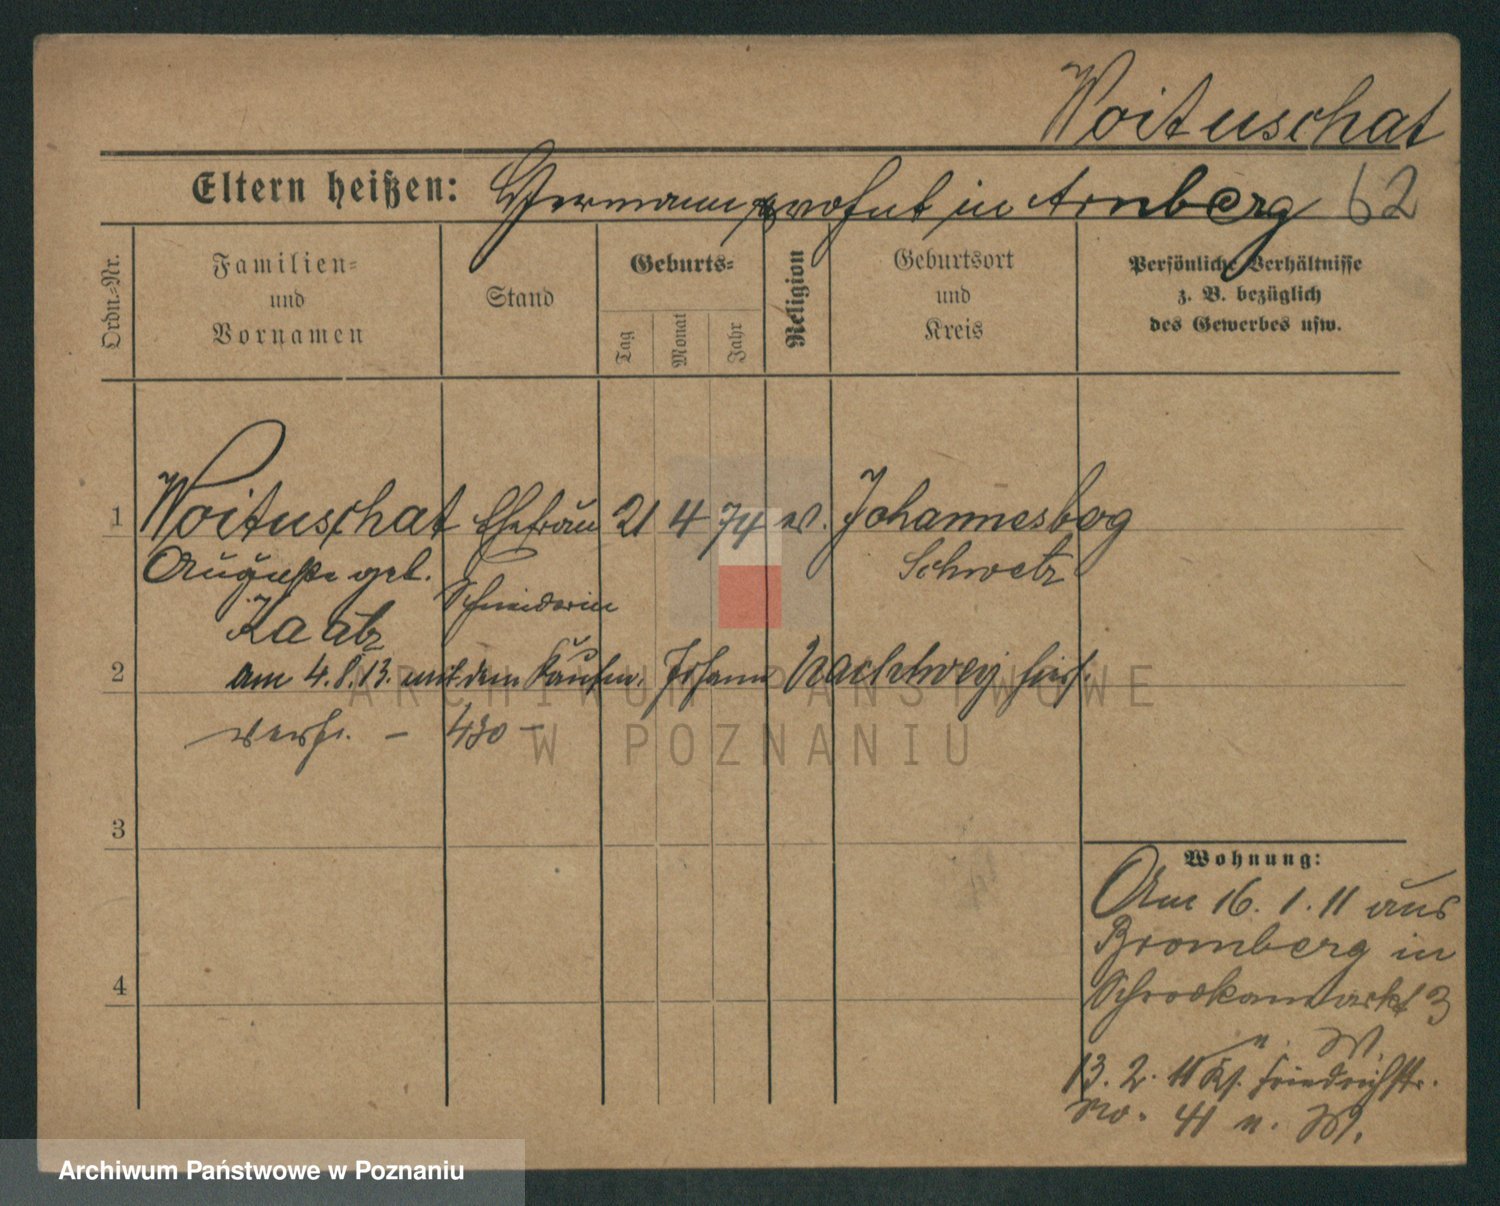 Woituschat
Eltern heißen: Hermann wohnt in Arnberg 62
Ordn.-Nr.
Familien-
und
Vornamen
Stand
Geburts-
Tag
Monat
Jahr
Religion
Geburtsort
und
Kreis
Persönliche Verhältnisse
z. B. bezüglich
des Gewerbes usw.
1 Woituschat Ehefrau 21 4 74 ev. Johannesberg
Auguste geb. Schwetz
Schneiderin
Kaatz
2 am 4.8.13. mit dem Kaufm. Johann Nachtwey hier.
verh. – 430 –
3
4
Wohnung:
Am 16. 1. 11 aus
Bromberg in
Schrodkamarkt 3
n. W.
13. 2. 11 Ks. Friedrichstr.
No. 41 n. W.
ARCHIWUM PAŃSTWOWE
W POZNANIU
Archiwum Państwowe w Poznaniu